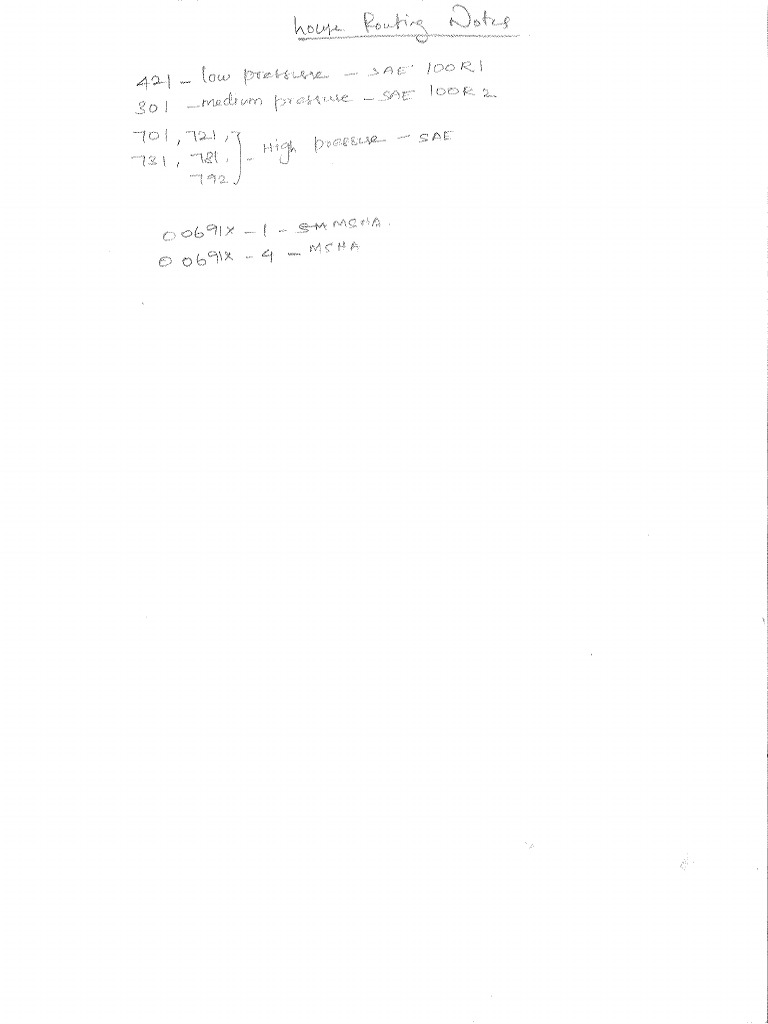 house Routing Notes
421 - low pressure - SAE 100R1
301 - medium pressure - SAE 100R2
701, 721,
731, 781,
792 } - High pressure - SAE
00691X - 1 - MSHA.
00691X - 4 - MSHA